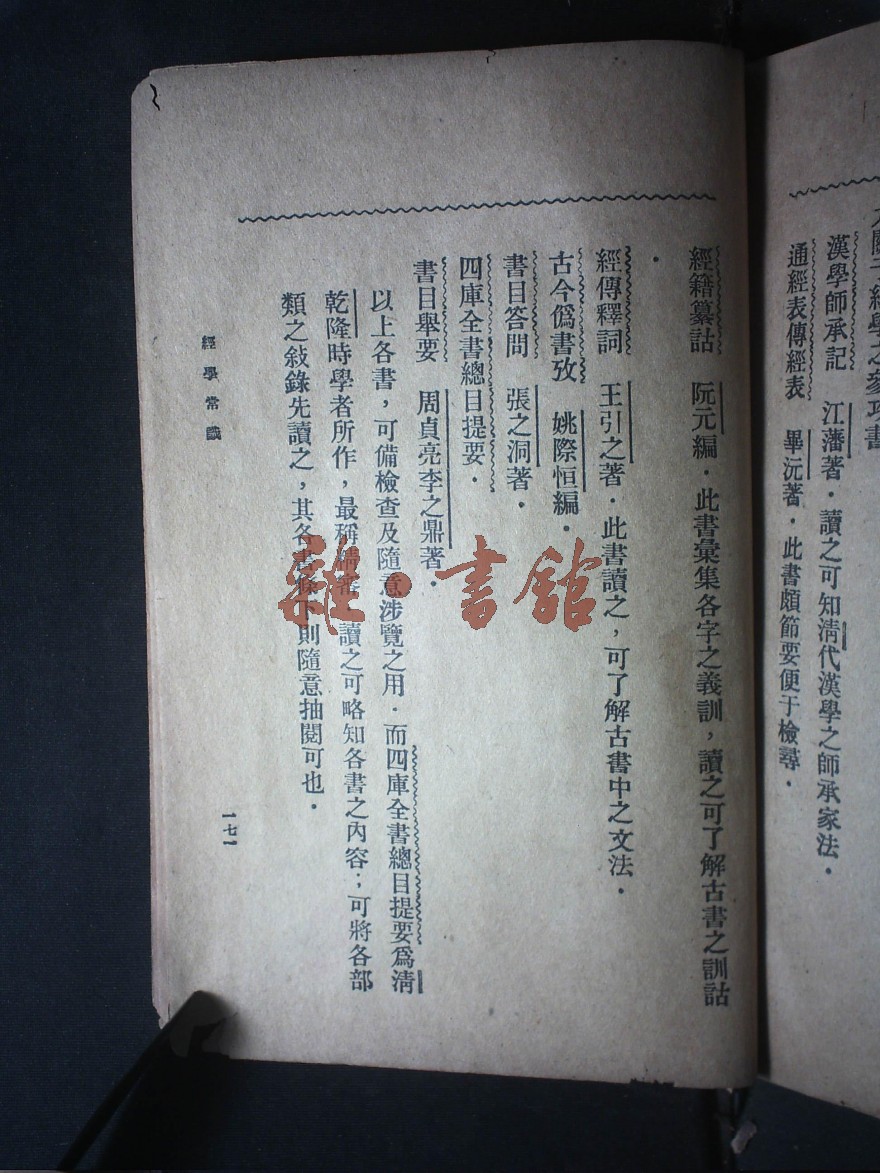 漢學師承記　江藩著．讀之可知清代漢學之師承家法．
通經表傳經表　畢沅著．此書頗節要便于檢尋．
經籍纂詁　阮元編．此書彙集各字之義訓，讀之可了解古書之訓詁
．
經傳釋詞　王引之著．此書讀之，可了解古書中之文法．
古今僞書攷　姚際恒編．
書目答問　張之洞著．
四庫全書總目提要．
書目舉要　周貞亮李之鼎著．
以上各書，可備檢查及隨意涉覽之用．而四庫全書總目提要爲清
乾隆時學者所作，最稱精審，讀之可略知各書之內容；可將各部
類之敍錄先讀之，其各書條下則隨意抽閱可也．
經學常識
一七一
雜·書館